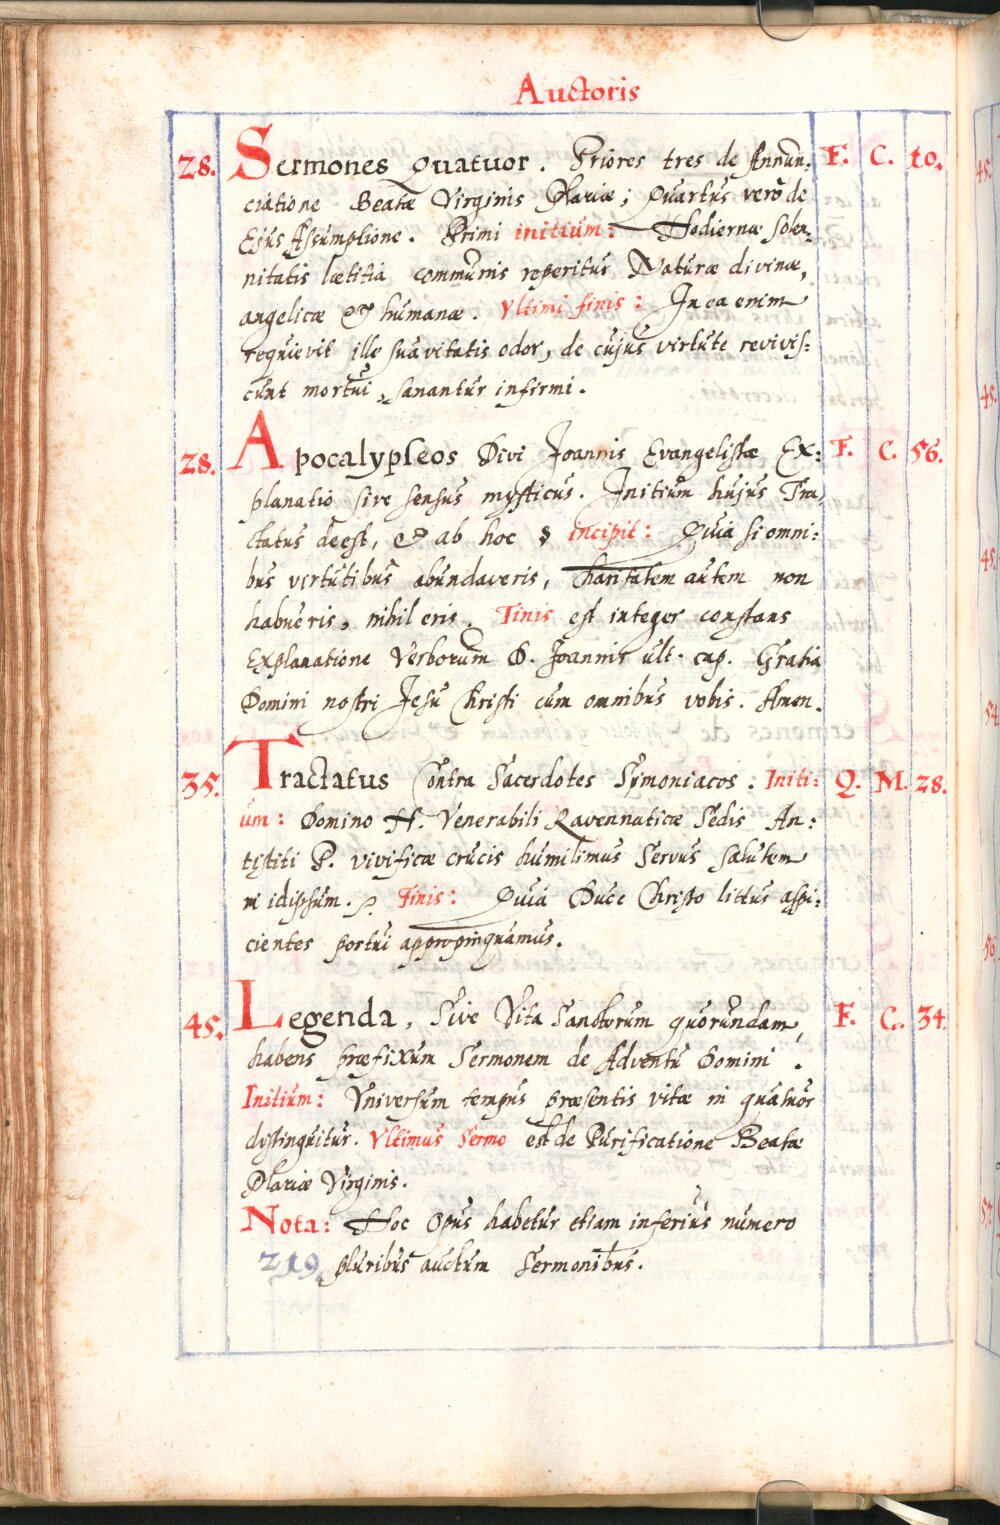 Auctoris
28. Sermones quatuor. Priores tres de Annun: F. C. 10.
ciatione Beatæ Virginis Mariæ; Quartus verò de
Ejus Assumptione. Primi initium: Hodiernæ solem:
nitatis lætitia communis reperitur Naturæ divinæ,
angelicæ & humanæ. Ultimi finis: In ea enim
requievit ille suavitatis odor, de cujus virtute revivis:
cunt mortui, sanantur infirmi.
28. Apocalypseos Divi Joannis Evangelistæ Ex: F. C. 56.
planatio sive sensus mysticus. Initium hujus Tra,
ctatus deest, & ab hoc § incipit: Quia si omni:
bus virtutibus abundaveris, charitatem autem non
habueris, nihil eris. Finis est integer constans
Explanatione Verborum D. Joannis ult. cap. Gratia
Domini nostri Jesu Christi cum omnibus vobis. Amen.
35. Tractatus Contra Sacerdotes Symoniacos. Initi: Q. M. 28.
um: Domino H. Venerabili Ravennaticæ Sedis An:
tistiti P. vivificæ crucis humilimus servus salutem
in idipsum. Finis: Quia Duce Christo littus aspi:
cientes portui appropinquamus.
45. Legenda, Sive Vita Sanctorum quorundam, F. C. 34.
habens præfixum Sermonem de Adventu Domini.
Initium: Universum tempus præsentis vitæ in quatuor
distinguitur. Ultimus Sermo est de Purificatione Beatæ
Mariæ Virginis.
Nota: Hoc Opus habetur etiam inferius numero
219. pluribus auctum Sermonibus.